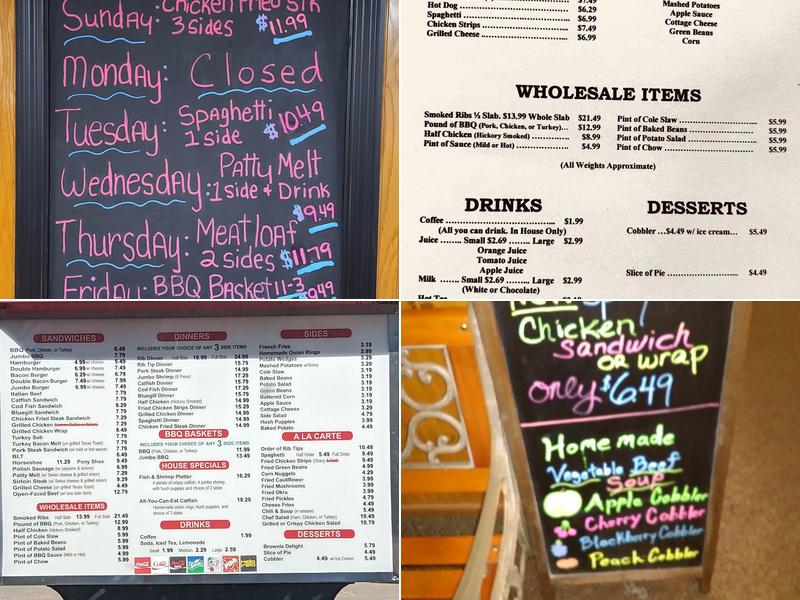 Sunday: Chicken Fried Stk
3 sides $11.99
Monday: Closed
Tuesday: Spaghetti
1 side $10.49
Wednesday: Patty Melt
1 side + Drink
$9.49
Thursday: Meatloaf
2 sides $11.79
Friday: BBQ Basket 11-3
$7.49
Hot Dog $6.29
Spaghetti $6.99
Chicken Strips $7.49
Grilled Cheese $6.99
Mashed Potatoes
Apple Sauce
Cottage Cheese
Green Beans
Corn
WHOLESALE ITEMS
Smoked Ribs ½ Slab. $13.99 Whole Slab $21.49
Pound of BBQ (Pork, Chicken, or Turkey)... $12.99
Half Chicken (Hickory Smoked) $8.99
Pint of Sauce (Mild or Hot) $4.99
Pint of Cole Slaw $5.99
Pint of Baked Beans $5.99
Pint of Potato Salad $5.99
Pint of Chow $5.99
(All Weights Approximate)
DRINKS
Coffee $1.99
(All you can drink. In House Only)
Juice ....... Small $2.69 ........ Large $2.99
Orange Juice
Tomato Juice
Apple Juice
Milk ....... Small $2.69 ........ Large $2.99
(White or Chocolate)
Hot Tea
DESSERTS
Cobbler ...$4.49 w/ ice cream... $5.49
Slice of Pie $4.49
SANDWICHES
BBQ (Pork, Chicken, or Turkey) 6.49
Jumbo BBQ 7.79
Hamburger 4.99 w/ cheese 5.49
Double Hamburger 6.99 w/ cheese 7.49
Bacon Burger 6.29 w/ cheese 6.79
Double Bacon Burger 7.49 w/ cheese 7.99
Jumbo Burger 6.99 w/ cheese 7.49
Italian Beef
Catfish Sandwich 7.79
Cod Fish Sandwich
Bluegill Sandwich
Chicken Fried Steak Sandwich
Grilled Chicken
Grilled Chicken Wrap
Turkey Sub
Turkey Bacon Melt (on grilled Texas Toast)
Pork Steak Sandwich (w/ mild or hot sauce)
BLT 6.49
Horseshoe 11.29 Pony Shoe
Polish Sausage (w/ peppers & onions)
Patty Melt (w/ Swiss cheese & grilled onion)
Sirloin Steak (w/ Swiss cheese & grilled onion)
Grilled Cheese (on grilled Texas Toast) 4.49
Open-Faced Beef (w/ one side item) 12.79
WHOLESALE ITEMS
Smoked Ribs Half Slab 13.99 Full Slab 21.49
Pound of BBQ (Pork, Chicken, or Turkey) 12.99
Half Chicken 8.99
Pint of Cole Slaw 5.99
Pint of Baked Beans 5.99
Pint of Potato Salad 5.99
Pint of BBQ Sauce (Mild or Hot) 4.99
Pint of Chow 5.99
DINNERS
INCLUDES YOUR CHOICE OF ANY 3 SIDE ITEMS
Rib Dinner Half Slab 18.99 Full Slab 24.99
Rib Tip Dinner 15.79
Pork Steak Dinner 14.29
Jumbo Shrimp (8 Piece) 17.29
Catfish Dinner 15.79
Cod Fish Dinner 15.79
Bluegill Dinner 15.79
Half Chicken (Hickory Smoked)
Fried Chicken Strips Dinner
Grilled Chicken Dinner
Spaghetti Dinner
Chicken Fried Steak Dinner
BBQ BASKETS
INCLUDES YOUR CHOICE OF ANY 3 SIDE ITEMS
BBQ (Pork, Chicken, or Turkey) 11.99
Jumbo BBQ 13.49
HOUSE SPECIALS
Fish & Shrimp Platter 16.29
4 pieces of crispy catfish, 4 jumbo shrimp,
with hush puppies and choice of 2 sides.
All-You-Can-Eat Catfish 18.29
Homestyle onion rings, hush puppies, and
choice of 3 sides
DRINKS
Coffee 1.99
Soda, Iced Tea, Lemonade
Small 1.99 Medium 2.29 Large 2.59
SIDES
French Fries 3.19
Homemade Onion Rings 3.99
Potato Wedges 3.29
Mashed Potatoes w/Gravy 3.29
Cole Slaw 3.19
Baked Beans 3.19
Potato Salad 3.19
Green Beans 3.19
Buttered Corn 3.19
Apple Sauce 3.19
Cottage Cheese 3.29
Side Salad 4.79
Hush Puppies 3.99
Baked Potato 4.49
A LA CARTE
Order of Rib Tips 10.49
Spaghetti Half Order 5.49 Full Order 9.49
Fried Chicken Strips 9.49
Fried Green Beans 4.99
Corn Nuggets 4.29
Fried Cauliflower 3.99
Fried Mushrooms 3.99
Fried Okra 3.99
Fried Pickles 3.99
Cheese Fries 4.49
Chili & Soup (in season) 5.49
Chef Salad (Ham, Chicken, or Turkey) 10.49
Grilled or Crispy Chicken Salad 10.79
DESSERTS
Brownie Delight 5.79
Slice of Pie 4.49
Cobbler 4.49 w/ Ice Cream 5.49
Chicken
Sandwich
or wrap
only $6.49
Homemade
Vegetable Beef
Soup
Apple Cobbler
Cherry Cobbler
Blackberry Cobbler
Peach Cobbler